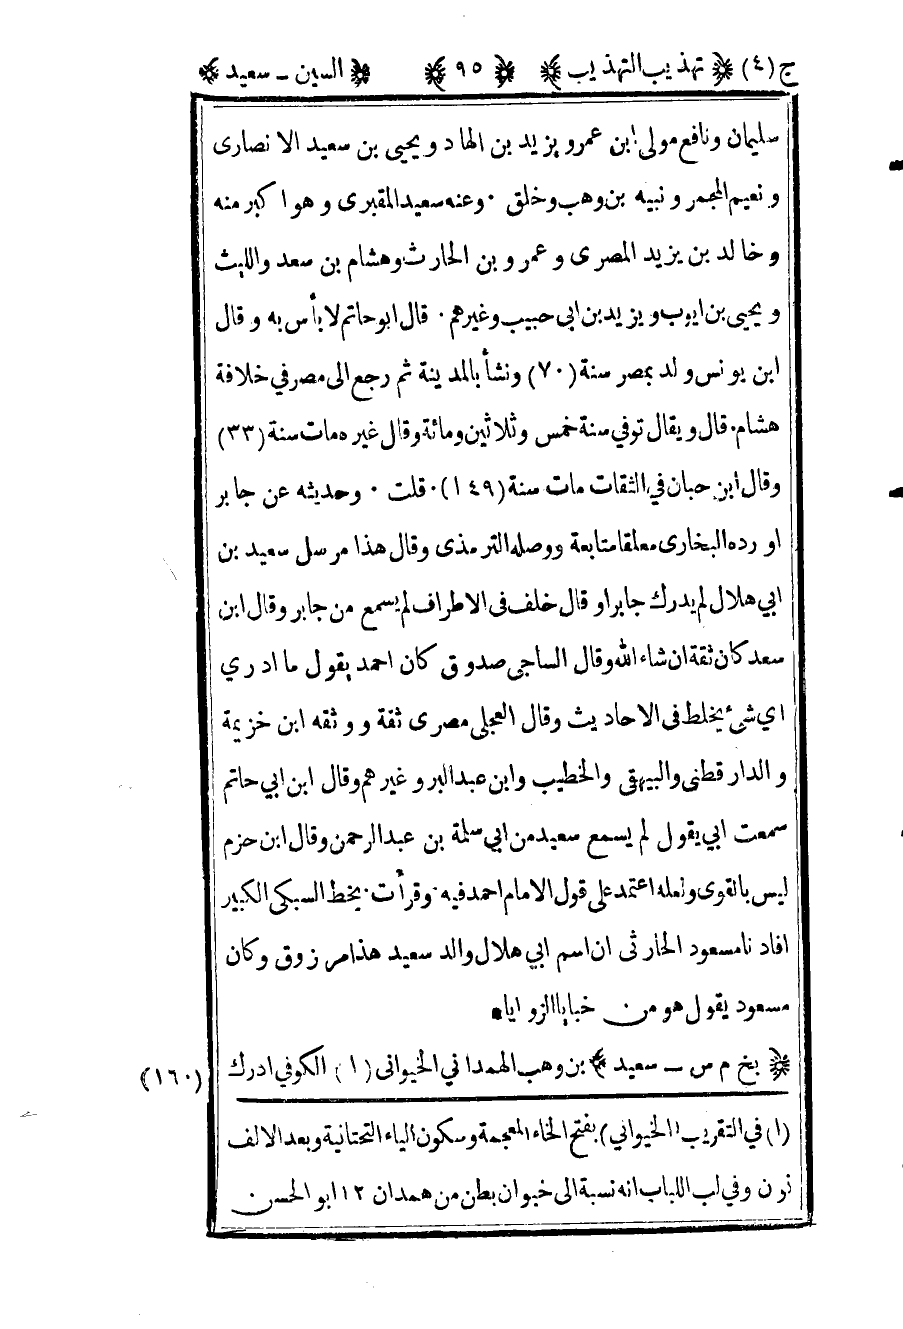 ج (٤) ﴿ تهذيب التهذيب ﴾ ﴿ ٩٥ ﴾ ﴿ السين ــ سعيد ﴾
سليمان ونافع مولى ابن عمر ويزيد بن الهاد ويحيى بن سعيد الانصارى
و نعيم المجمر و نبيه بن وهب وخلق ٠ وعنه سعيد المقبرى و هو اكبر منه
و خالد بن يزيد المصرى و عمرو بن الحارث وهشام بن سعد والليث
و يحيى بن ايوب ويزيد بن ابى حبيب وغيرهم ٠ قال ابو حاتم لا بأس به وقال
ابن يونس ولد بمصر سنة (٧٠) ونشأ بالمدينة ثم رجع الى مصر في خلافة
هشام ٠ قال ويقال توفي سنة خمس وثلاثين ومائة وقال غيره مات سنة (٣٣)
وقال ابن حبان في الثقات مات سنة (١٤٩) ٠ قلت ٠ وحديثه عن جابر
اورده البخارى معلقا متابعة ووصله الترمذى وقال هذا مرسل سعيد بن
ابي هلال لم يدرك جابرا وقال خلف فى الاطراف لم يسمع من جابر وقال ابن
سعد كان ثقة ان شاء الله وقال الساجى صدوق كان احمد يقول ما ادري
اي شئ يخلط فى الاحاديث وقال العجلى مصرى ثقة ووثقه ابن خزيمة
والدارقطنى والبيهقى والخطيب وابن عبد البر وغيرهم وقال ابن ابي حاتم
سمعت ابي يقول لم يسمع سعيد من ابي سلمة بن عبد الرحمن وقال ابن حزم
ليس بالقوى ولعله اعتمد على قول الامام احمد فيه ٠ وقرأت ٠ بخط السبكى الكبير
افادنا مسعود الحارثى ان اسم ابي هلال والد سعيد هذا مرزوق وكان
مسعود يقول هو من خبايا الزوايا ٠
﴿ بخ م س ــ سعيد ﴾ بن وهب الهمداني الخيوانى (١) الكوفي ادرك (١٦٠)
(١) في التقريب (الخيواني) بفتح الخاء المعجمة وسكون الياء التحتانية وبعد الالف
نون وفي لب اللباب انه نسبة الى خيوان بطن من همدان ١٢ ابو الحسن ٠